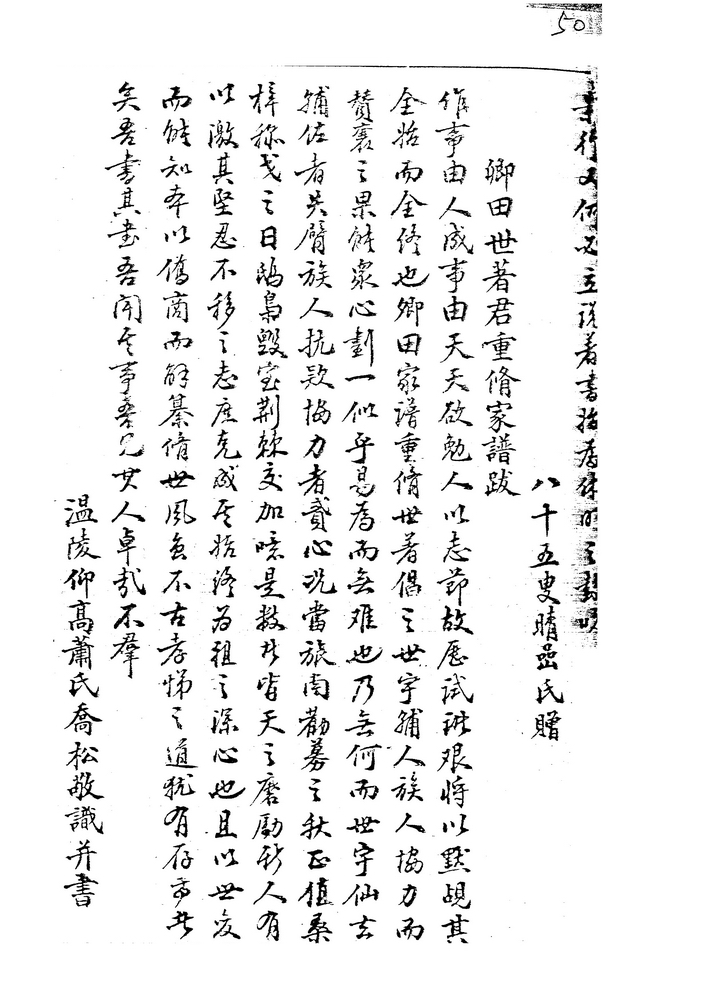 50
行又何必立說著書
八十五叟晴嵒氏贈
卿田世著君重脩家譜跋
作事由人成事由天天欲勉人以志節故歷試諸艱將以默覘其
全始而全終也卿田家譜重脩世著倡之世宇輔人族人協力而
贊襄之果能衆心劃一似乎易為而無难也乃無何而世宇仙去
輔佐者失臂族人抗款協力者貳心況當旅南勸募之秋正值桑
梓称戈之日鴟鴞毀室荆棘交加噫是数者皆天之磨勵斯人有
以激其堅忍不移之志庶克成其始終為祖之深心也且以世敻
而能知本以僑商而能纂脩世風雖不古孝悌之道犹有存焉者
矣吾書其畫吾聞其事吾見其人卓哉不羣
温陵仰高蕭氏喬松敬識并書